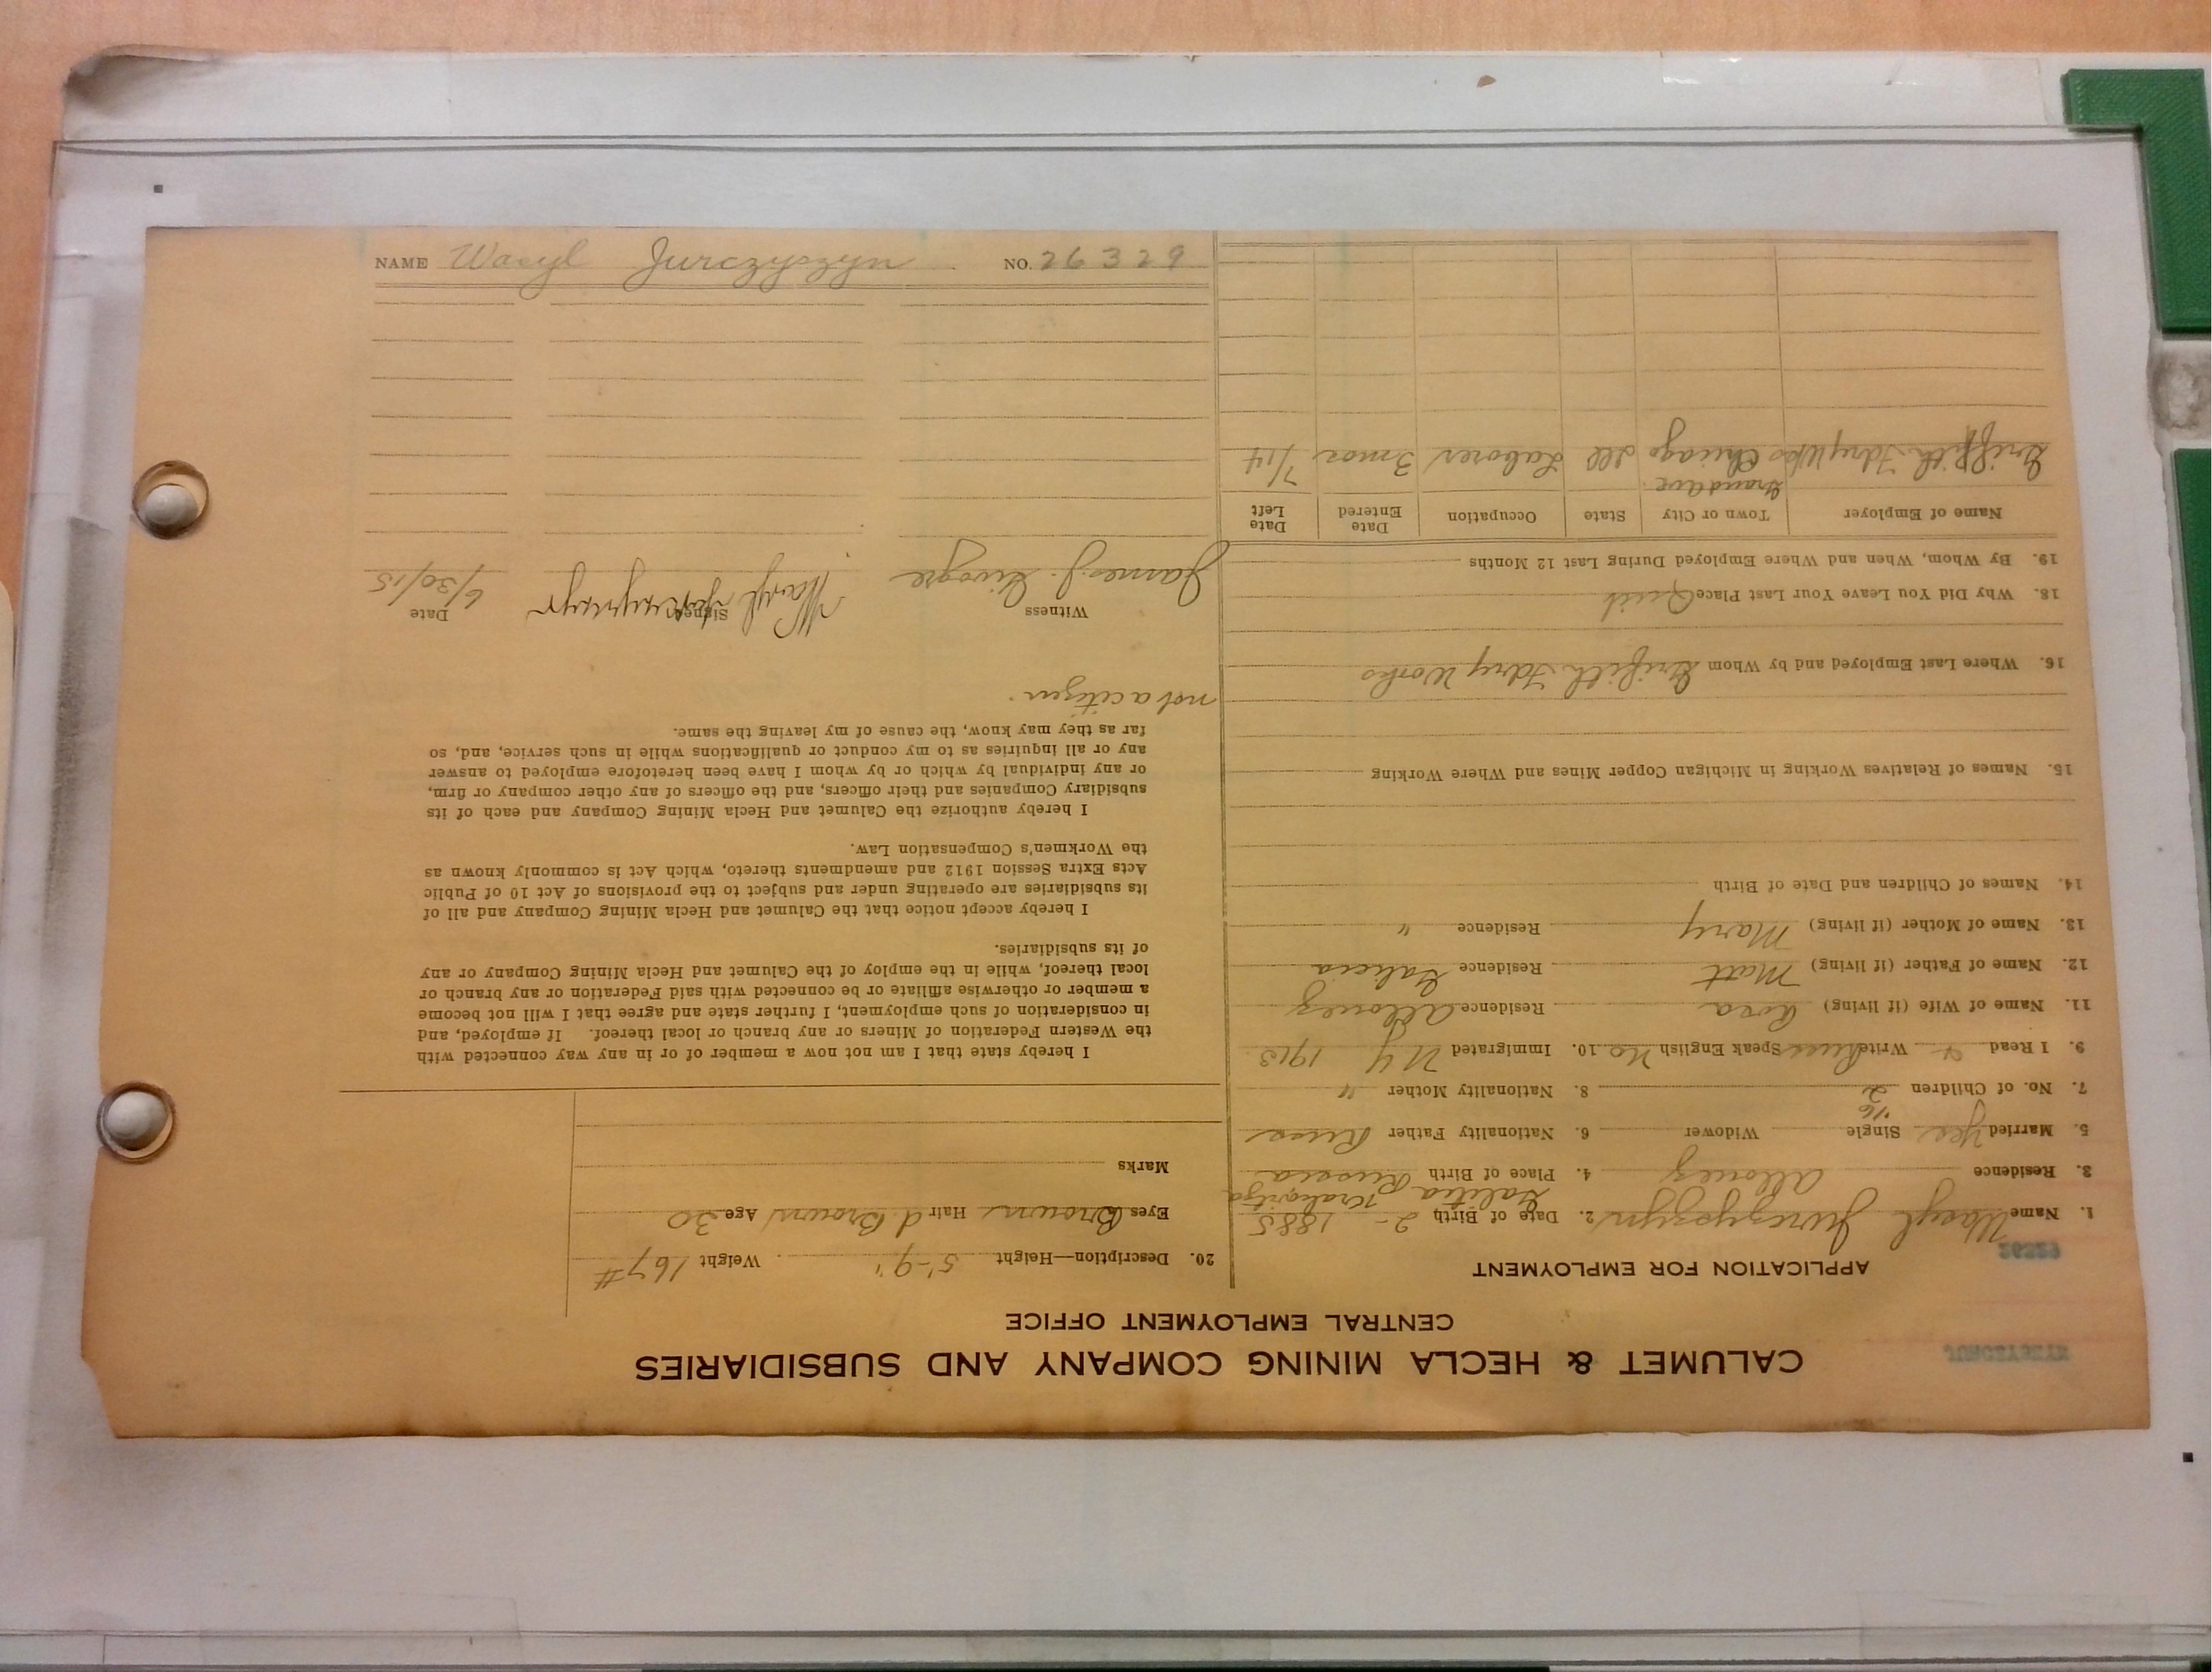 JURCZYSZYN
CALUMET & HECLA MINING COMPANY AND SUBSIDIARIES
CENTRAL EMPLOYMENT OFFICE
APPLICATION FOR EMPLOYMENT
1. Name Wasyl Jurczyszyn 2. Date of Birth 2- 1885
Galitia
3. Residence Allouez 4. Place of Birth Russia
5. Married Yes Single Widower 6. Nationality Father Russ
7. No. of Children 2 8. Nationality Mother "
9. I Read + Write Russ Speak English No 10. Immigrated N Y 1913
11. Name of Wife (if living) Rosa Residence Allouez
12. Name of Father (if living) Matt Residence Galicia
13. Name of Mother (if living) Mary Residence "
14. Names of Children and Date of Birth
15. Names of Relatives Working in Michigan Copper Mines and Where Working
16. Where Last Employed and by Whom Griffith Fdry Works
18. Why Did You Leave Your Last Place Quit
19. By Whom, When and Where Employed During Last 12 Months
Name of Employer Town or City State Occupation Date Entered Date Left
Grand Ave.
Griffith Fdry Wks Chicago Ill Laborer 3 mos 7/14
20. Description—Height 5'-9" Weight 167#
Eyes Brown Hair d Brown Age 30
Marks
I hereby state that I am not now a member of or in any way connected with
the Western Federation of Miners or any branch or local thereof. If employed, and
in consideration of such employment, I further state and agree that I will not become
a member or otherwise affiliate or be connected with said Federation or any branch or
local thereof, while in the employ of the Calumet and Hecla Mining Company or any
of its subsidiaries.
I hereby accept notice that the Calumet and Hecla Mining Company and all of
its subsidiaries are operating under and subject to the provisions of Act 10 of Public
Acts Extra Session 1912 and amendments thereto, which Act is commonly known as
the Workmen's Compensation Law.
I hereby authorize the Calumet and Hecla Mining Company and each of its
subsidiary Companies and their officers, and the officers of any other company or firm,
or any individual by which or by whom I have been heretofore employed to answer
any or all inquiries as to my conduct or qualifications while in such service, and, so
far as they may know, the cause of my leaving the same.
not a citizen.
Witness Signed Date
James J. Wasyl 6/30/15
NAME Wasyl Jurczyszyn NO. 26329